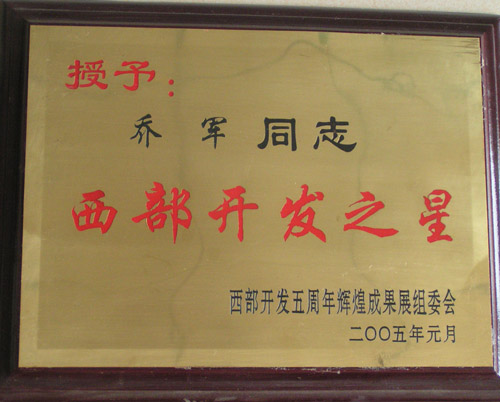 授予：
乔军同志
西部开发之星
西部开发五周年辉煌成果展组委会
二〇〇五年元月